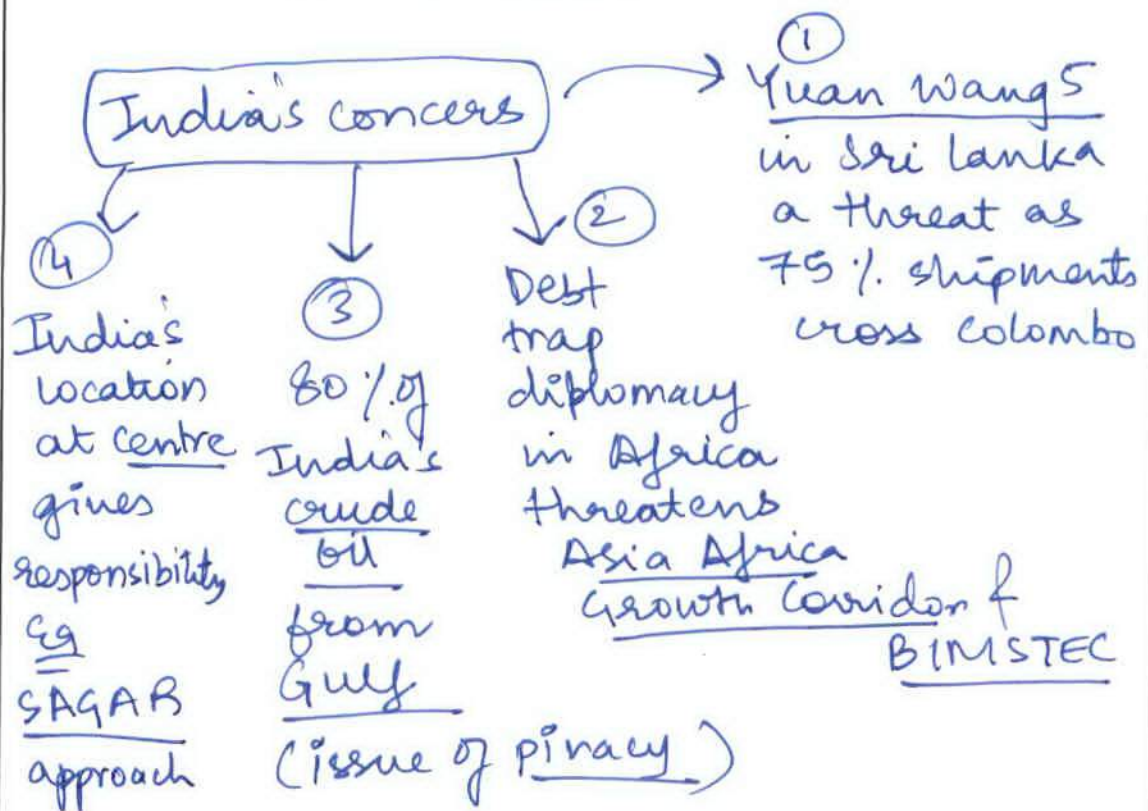 India's concers
①
Yuan Wang 5
in Sri Lanka
a threat as
75 % shipments
cross Colombo
②
Debt
trap
diplomacy
in Africa
threatens
Asia Africa
Growth Corridor &
BIMSTEC
③
80 % of
India's
crude
oil
from
Gulf
(issue of piracy)
④
India's
location
at centre
gives
responsibility
Eg
SAGAR
approach